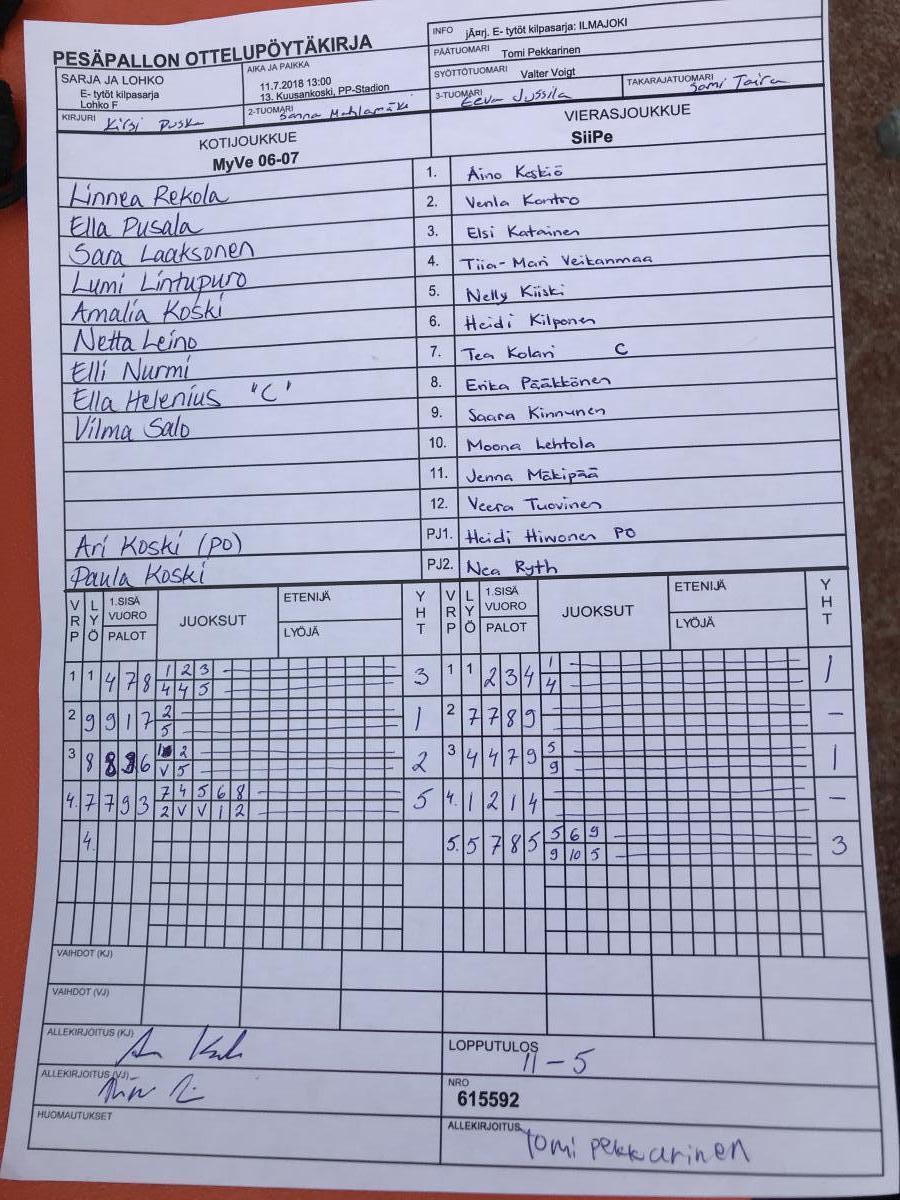 PESÄPALLON OTTELUPÖYTÄKIRJA
INFO jÄ¤rj. E- tytöt kilpasarja: ILMAJOKI
PÄÄTUOMARI Tomi Pekkarinen
SARJA JA LOHKO
E- tytöt kilpasarja
Lohko F
AIKA JA PAIKKA
11.7.2018 13:00
13. Kuusankoski, PP-Stadion
SYÖTTÖTUOMARI Valter Voigt
3-TUOMARI Eeva Jussila
TAKARAJATUOMARI Sami Toira
KIRJURI Kirsi Puska
2-TUOMARI Sanna Mahlamäki
KOTIJOUKKUE
MyVe 06-07
VIERASJOUKKUE
SiiPe
Linnea Rekola 1. Aino Keskiö
Ella Pusala 2. Venla Kontro
Sara Laaksonen 3. Elsi Katainen
Lumi Lintupuro 4. Tiia-Mari Veikanmaa
Amalia Koski 5. Nelly Kiiski
Netta Leino 6. Heidi Kilponen
Elli Nurmi 7. Tea Kolari C
Ella Helenius "C" 8. Erika Pääkkönen
Vilma Salo 9. Saara Kinnunen
10. Moona Lehtola
11. Jenna Mäkipää
12. Veera Tuovinen
Ari Koski (PO) PJ1. Heidi Hirvonen PO
Paula Koski PJ2. Nea Ryth
VRP LYÖ 1.SISÄ VUORO PALOT JUOKSUT ETENIJÄ LYÖJÄ YHT VRP LYÖ 1.SISÄ VUORO PALOT JUOKSUT ETENIJÄ LYÖJÄ YHT
1 1 4 7 8 1 2 3 3 1 1 2 3 4 1 1
4 4 5 4
2 9 9 1 7 2 1 2 7 7 8 9 –
5
3 8 8 6 2 2 3 4 4 7 9 5 1
V 5 9
4. 7 7 9 3 7 4 5 6 8 5 4. 1 2 1 4 –
2 V V 1 2
4. 5. 5 7 8 5 5 6 9 3
9 10 5
VAIHDOT (KJ)
VAIHDOT (VJ)
ALLEKIRJOITUS (KJ)
LOPPUTULOS 11 – 5
ALLEKIRJOITUS (VJ)
NRO
615592
HUOMAUTUKSET
ALLEKIRJOITUS Tomi Pekkarinen